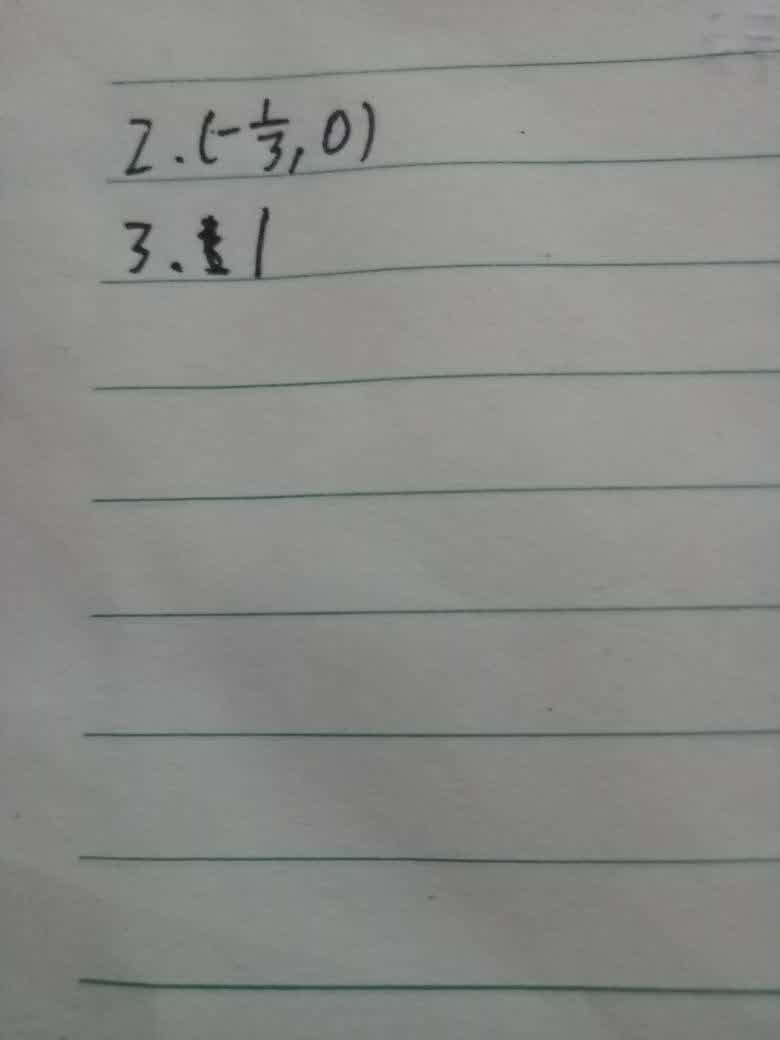 2. (-1/3, 0)
3. 1